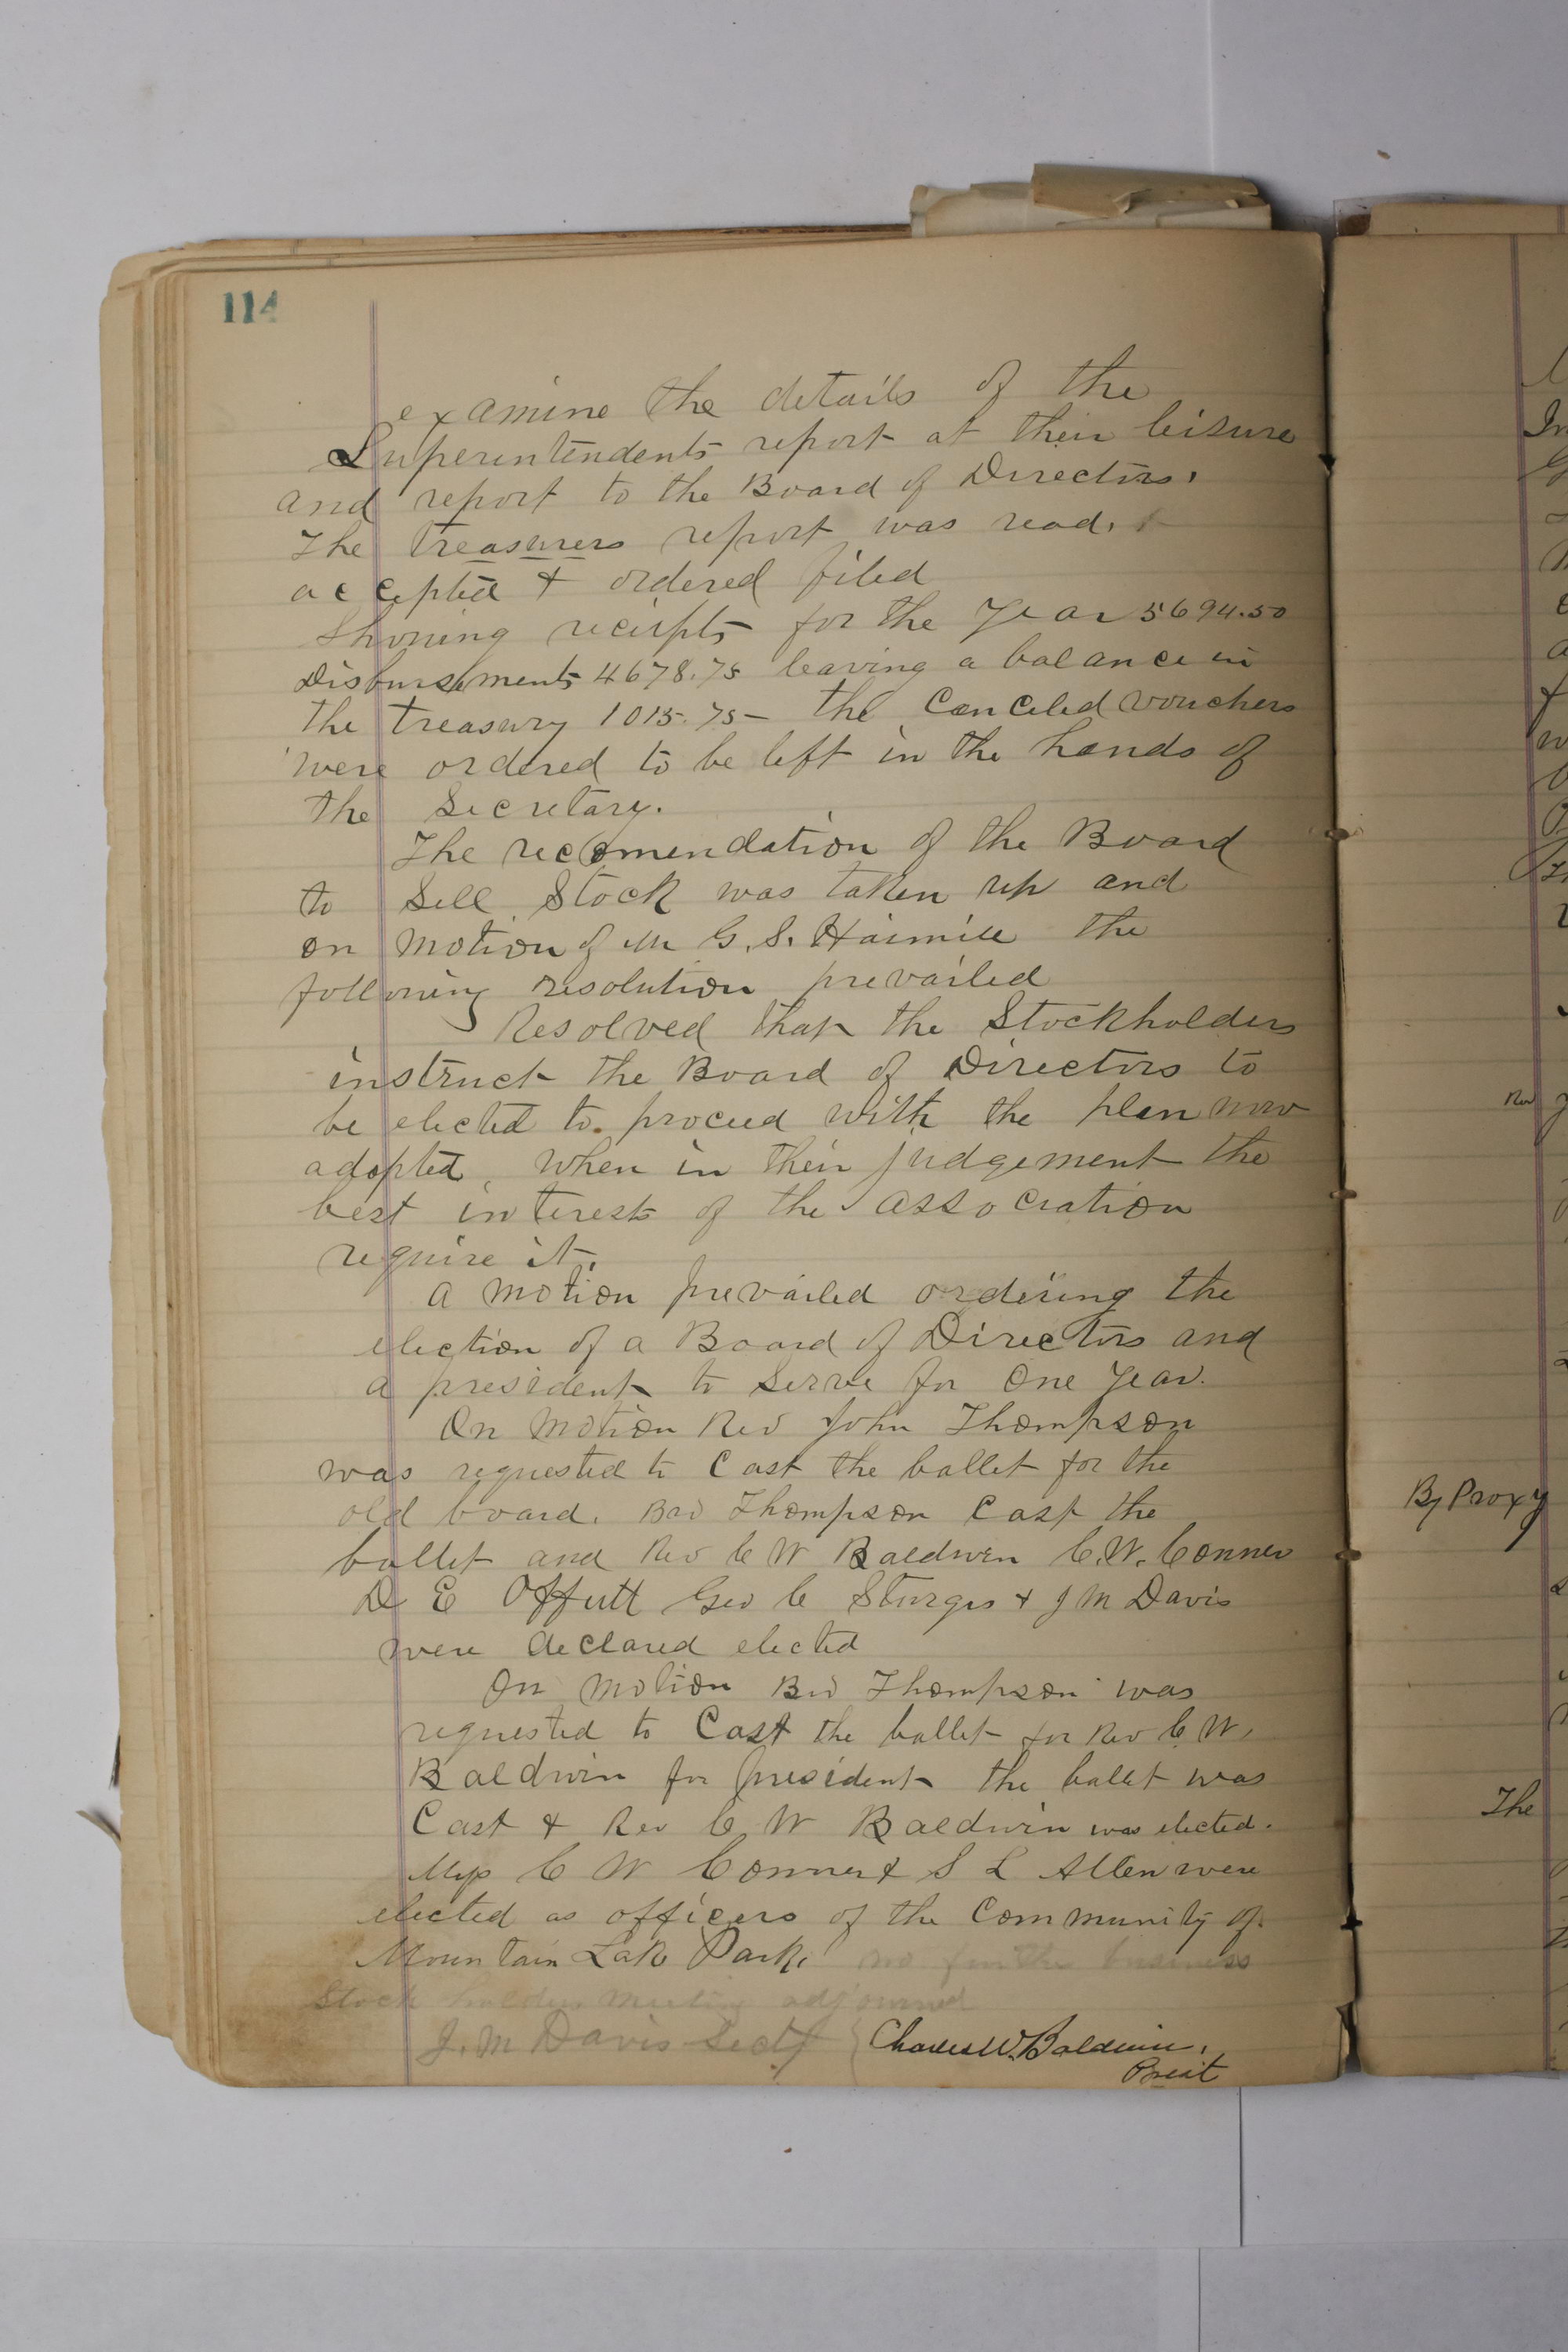 114
examine the details of the
Superentendents report at their leisure
and report to the Board of Directors.
The treasurers report was read,
accepted & ordered filed
Showing reciepts for the Year 5694.50
Disbursements 4678.75 leaving a balance in
the treasury 1015.75 - the Canceled vouchers
were ordered to be left in the hands of
the Secretary.
The recomendation of the Board
to Sell Stock was taken up and
on motion of Mr G. S. the
following resolution prevailed
Resolved that the Stockholders
instruct the Board of Directors to
be elected to proceed with the plan now
adopted, when in their judgement the
best interests of the association
require it.
a motion prevailed ordering the
election of a Board of Directors and
a president to Serve for One Year.
On motion Rev John Thompson
was requested to Cast the ballet for the
old board. Bro Thompson Cast the
ballet and Rev C W Baldwin C. W. Conner
D E Offutt Geo C Sturgis & J M Davis
were declared elected
On motion Bro Thompson was
requested to Cast the ballet for Rev C. W.
Baldwin for president the ballet was
Cast & Rev C W Baldwin was elected.
C W Conner & S L Allen were
elected as officers of the Community of
Mountain Lake Park. no further business
Stock holders meeting adjourned
J. M Davis Secty Charles W. Baldwin,
Presit
By Proxy
The